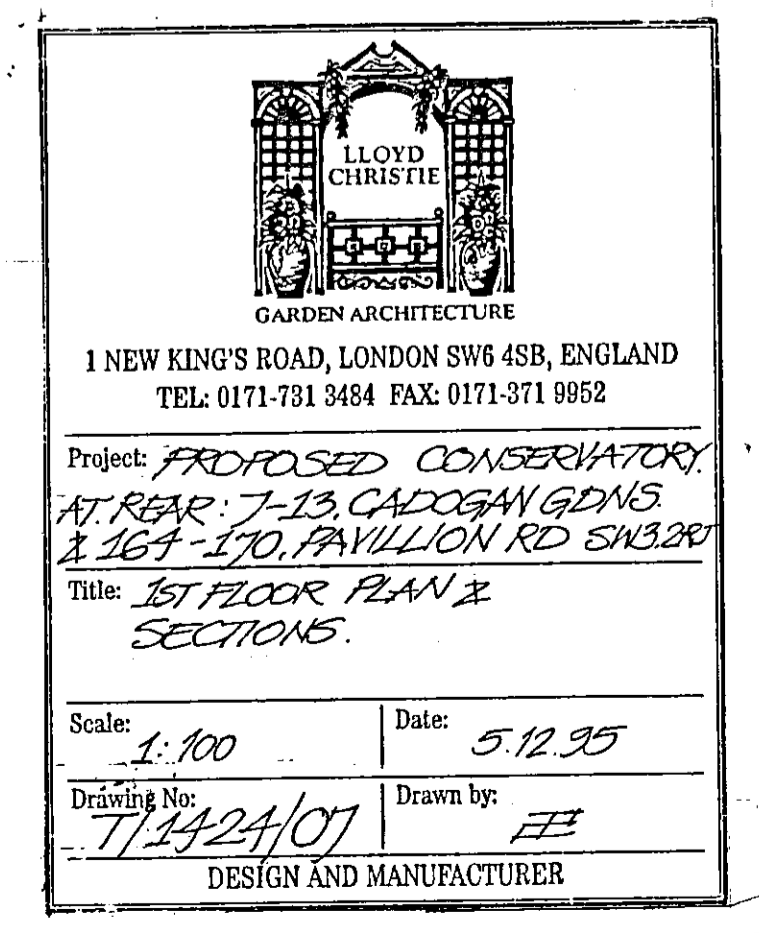 LLOYD
CHRISTIE
GARDEN ARCHITECTURE
1 NEW KING'S ROAD, LONDON SW6 4SB, ENGLAND
TEL: 0171-731 3484 FAX: 0171-371 9952
Project: PROPOSED CONSERVATORY.
AT. REAR: 7-13. CADOGAN GDNS.
& 164-170, PAVILLION RD SW3.2RJ
Title: 1ST FLOOR PLAN &
SECTIONS.
Scale: 1:100 Date: 5.12.95
Drawing No: T/1424/07 Drawn by:
DESIGN AND MANUFACTURER